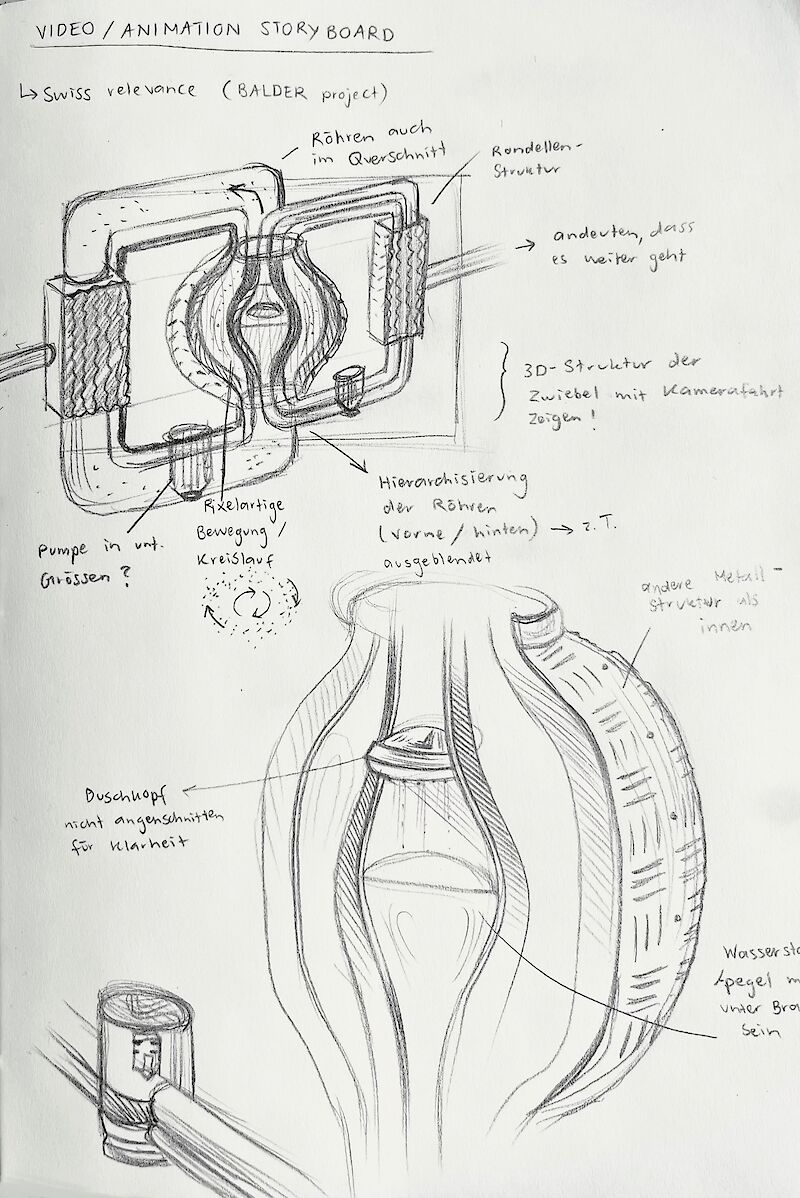 VIDEO / ANIMATION STORYBOARD
↳ Swiss relevance (BALDER project)
Röhren auch
im Querschnitt
Rondellen-
Struktur
→ andeuten, dass
es weiter geht
3D-Struktur der
Zwiebel mit Kamerafahrt
zeigen!
Hierarchisierung
der Röhren
(vorne / hinten) → z.T.
ausgeblendet
Pixelartige
Bewegung /
Kreislauf
Pumpe in unt.
Grössen?
andere Metall-
struktur als
innen
Duschkopf
nicht angenschnitten
für Klarheit
Wassersta
spegel m
unter Bra
sein